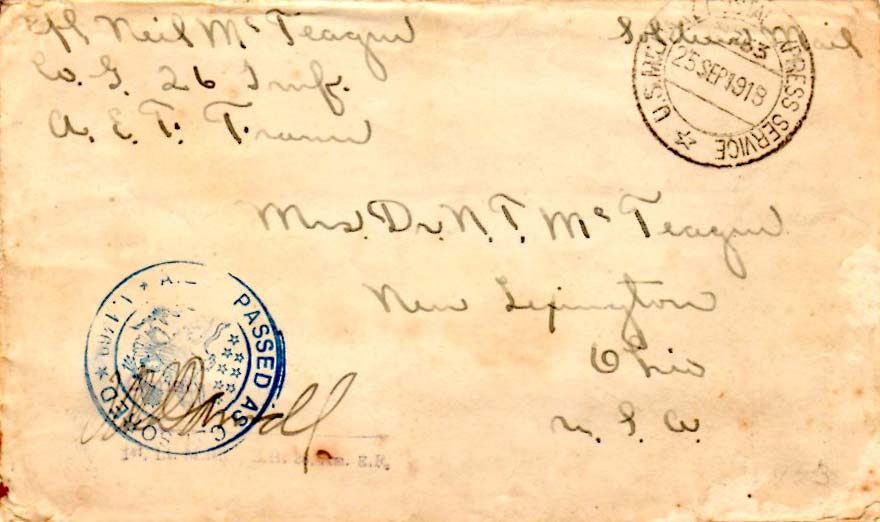 Cpl Neil McTeague
Co. G. 26 Inf.
A. E. F. France
Soldiers Mail
U.S. EXPRESS SERVICE
25 SEP 1918
Mrs. Dr. N. T. McTeague
New Lexington
Ohio
U. S. A.
PASSED AS CENSORED
1st Lt. E.F.